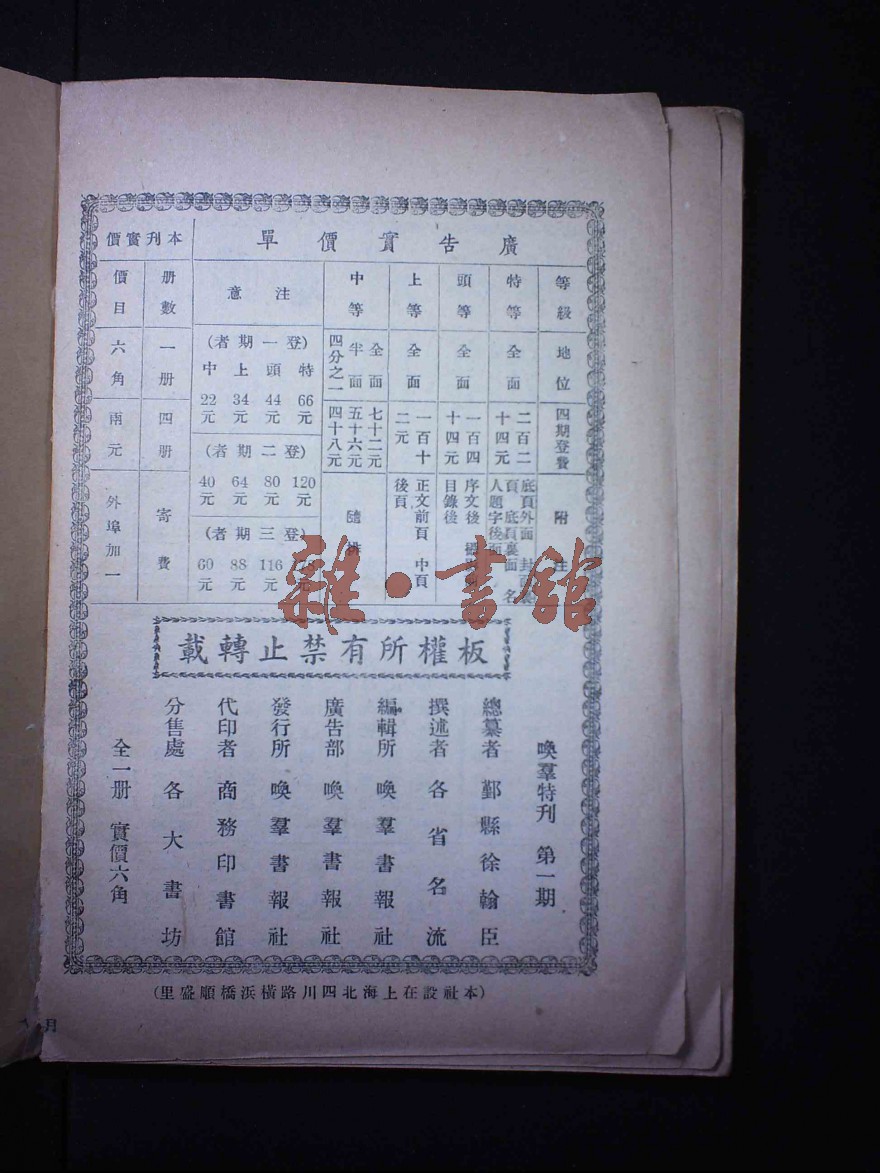 廣告實價單
等級
特等
頭等
上等
中等
地位
全面
全面
全面
全面
半面
四分之一
四期登費
二百二十四元
一百四十四元
一百十二元
七十二元
五十六元
四十八元
附
底頁外面
頁 底頁裏面 名
人題字後面
序文後
目錄後
正文前頁 中頁
後頁
隨
注意
(登一期者)
特 頭 上 中
66元 44元 34元 22元
(登二期者)
120元 80元 64元 40元
(登三期者)
116元 88元 60元
本刊實價
册數
價目
一册
六角
四册
兩元
寄費
外埠加一
板權所有禁止轉載
喚羣特刊 第一期
總纂者 鄞縣徐翰臣
撰述者 各省名流
編輯所 喚羣書報社
廣告部 喚羣書報社
發行所 喚羣書報社
代印者 商務印書館
分售處 各大書坊
全一册 實價六角
(本社設在上海北四川路橫浜橋順盛里)
月
雜·書館